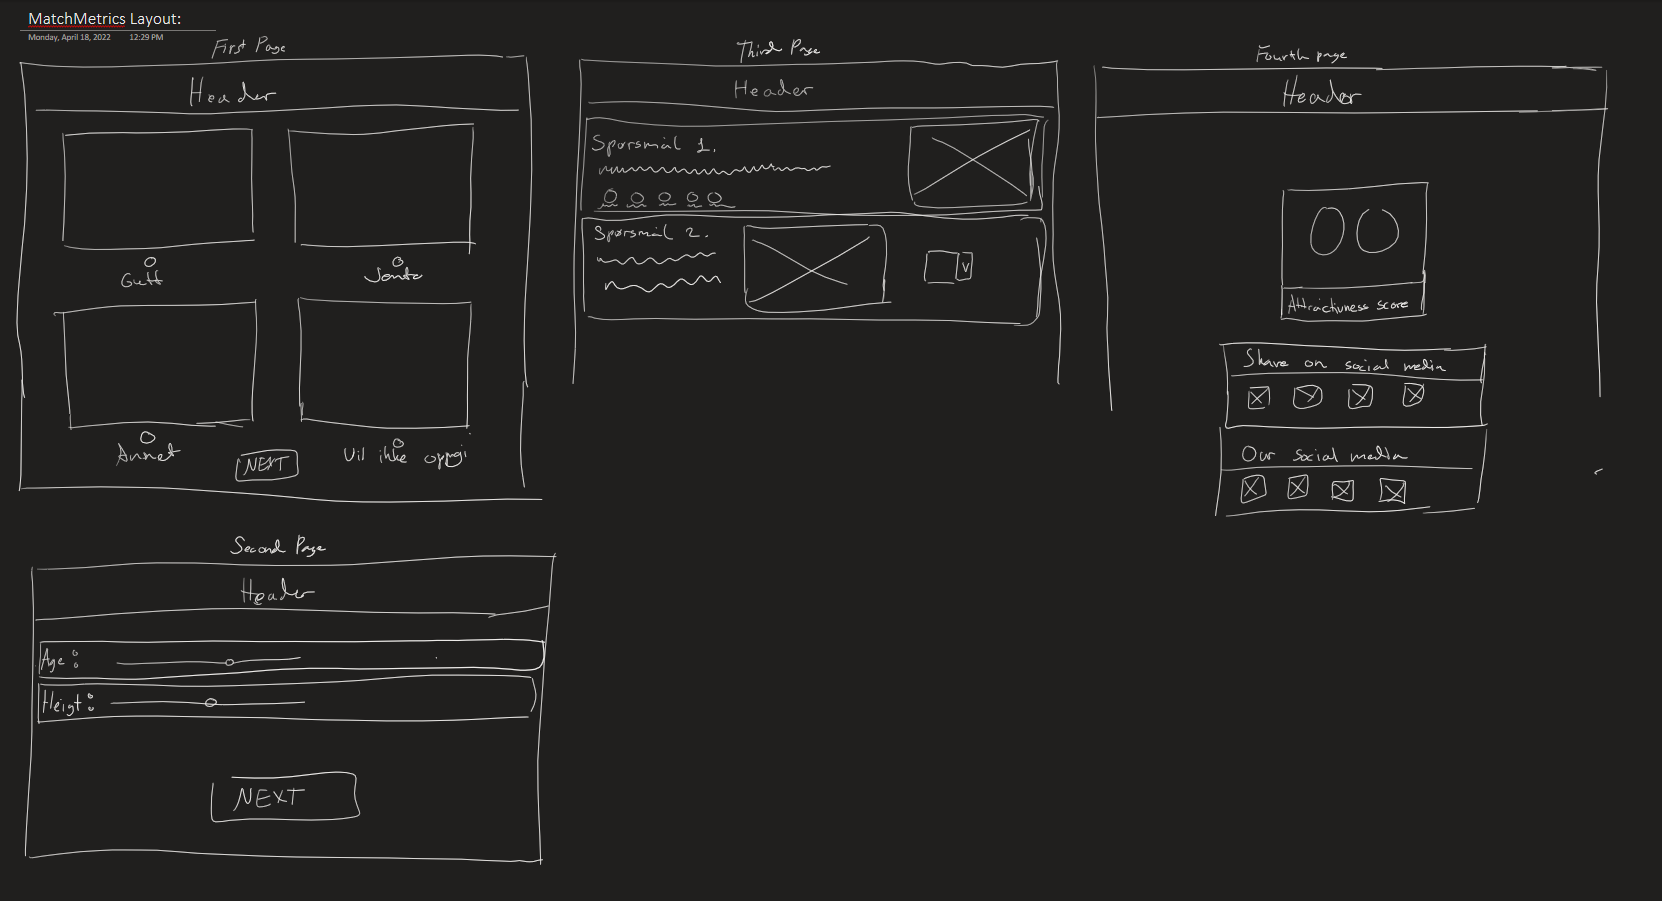 MatchMetrics Layout:
Monday, April 18, 2022 12:29 PM
First Page
Header
Gutt
Jente
Annet
Vil ikke oppgi
NEXT
Second Page
Header
Age:
Heigt:
NEXT
Third Page
Header
Spørsmål 1.
Spørsmål 2.
V
Fourth page
Header
Attractivness score
Share on social media
Our social media